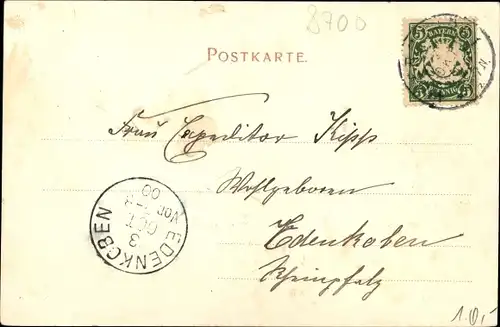 8700
POSTKARTE.
BAYERN
5 5
PFENNIG
5 5
Frau Expeditor Kipp
Wohlgeboren
Edenkoben
Rheinpfalz
EDENKOBEN
3
OCT
VOR 7-8
00